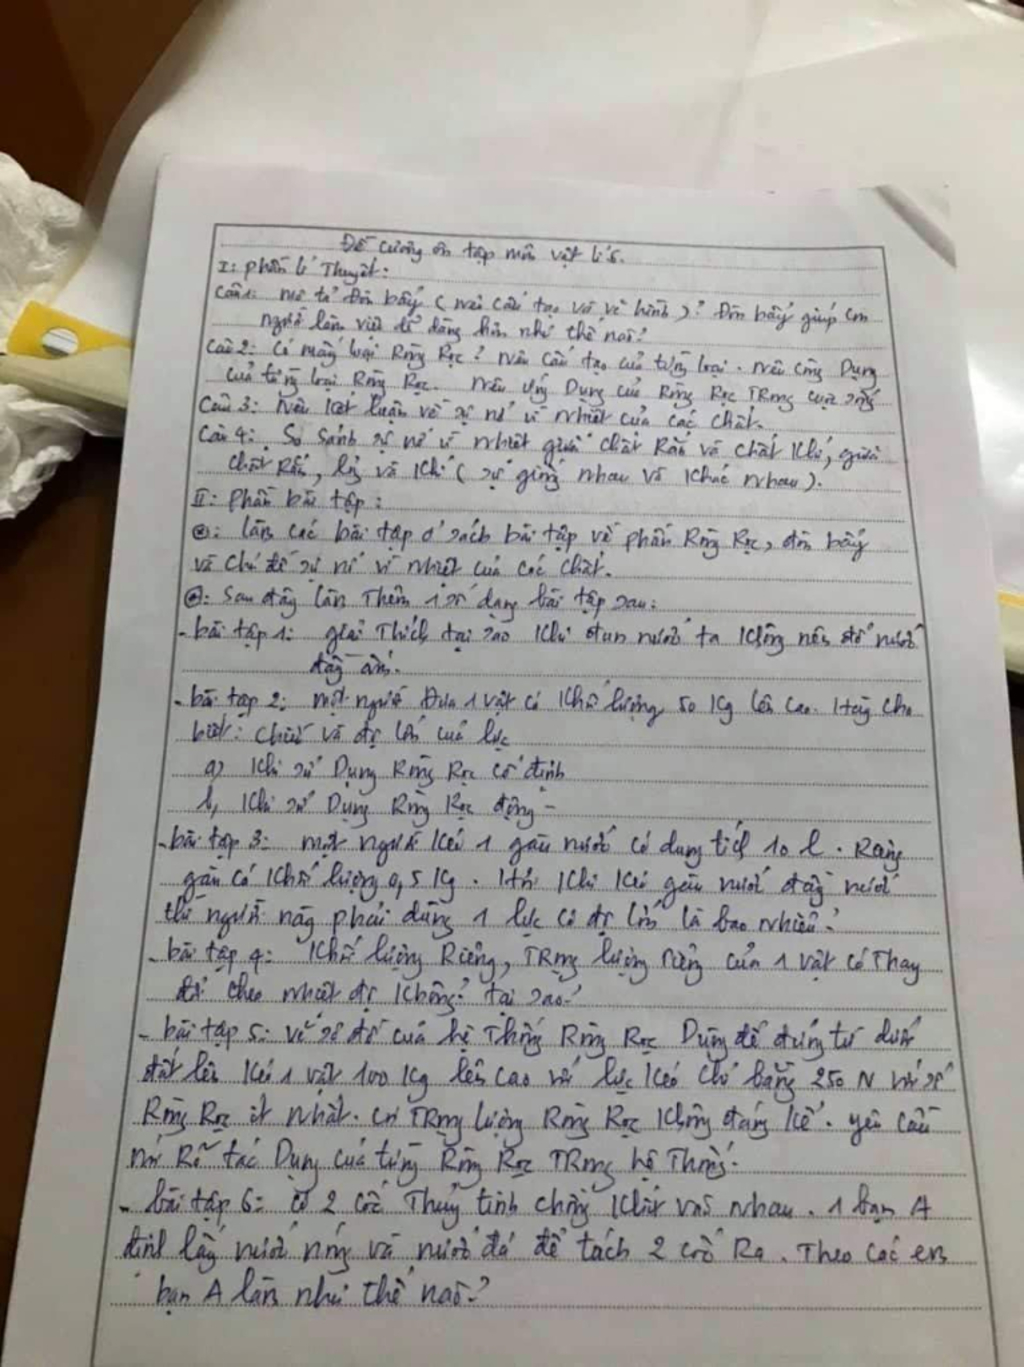 Đề cương ôn tập môn vật lí 6.
I: Phần lí Thuyết:
Câu 1: mô tả Đòn bẩy (nêu cấu tạo và vẽ hình)? Đòn bẩy giúp con
người làm việc dễ dàng hơn như thế nào?
Câu 2: Có mấy loại Ròng Rọc? nêu cấu tạo của từng loại. nêu công Dụng
của từng loại Ròng Rọc. nêu ứng Dụng của Ròng Rọc TRong cuộc sống
Câu 3: nêu kết luận về sự nở vì nhiệt của các chất.
Câu 4: So sánh sự nở vì nhiệt giữa chất Rắn và chất khí, giữa
chất Rắn, lỏng và khí (sự giống nhau và khác nhau).
II: Phần bài tập:
làm các bài tập ở sách bài tập về phần Ròng Rọc, đòn bẩy
và chủ đề sự nở vì nhiệt của các chất.
Sau đây làm Thêm 1 số dạng bài tập sau:
- bài tập 1: giải Thích tại sao khi đun nước ta không nên đổ nước
đầy ấm.
- bài tập 2: một người Đưa 1 vật có khối lượng 50 kg lên cao. Hãy cho
biết: chiều và độ lớn của lực
a) khi sử Dụng Ròng Rọc cố định
b, khi sử Dụng Ròng Rọc động -
- bài tập 3: một người kéo 1 gàu nước có dung tích 10 l. Rằng
gàu có khối lượng 0,5 kg. Hỏi khi kéo gàu nước đầy nước
thì người này phải dùng 1 lực có độ lớn là bao nhiêu?
- bài tập 4: khối lượng Riêng, TRọng lượng riêng của 1 vật có Thay
đổi theo nhiệt độ không? tại sao?
- bài tập 5: vẽ sơ đồ của hệ Thống Ròng Rọc Dùng để đứng từ dưới
đất lên kéo 1 vật 100 kg lên cao với lực kéo chỉ bằng 250 N với số
Ròng Rọc ít nhất. coi TRọng lượng Ròng Rọc không đáng kể. yêu cầu
nói Rõ tác Dụng của từng Ròng Rọc TRong hệ Thống.
- bài tập 6: có 2 cốc Thủy tinh chồng khít vào nhau. 1 bạn A
định lấy nước nóng và nước đá để tách 2 cốc Ra. Theo các em
bạn A làm như thế nào?